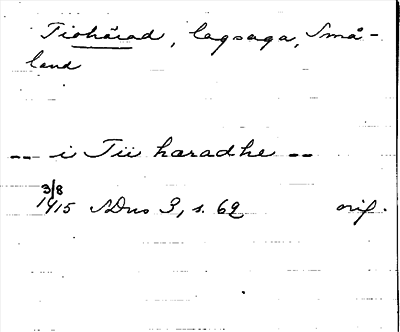 Tiohärad, lagsaga, Små-
land
-- i Tii haradhe --
3/8
1415 SDns 3, s. 62 orig.